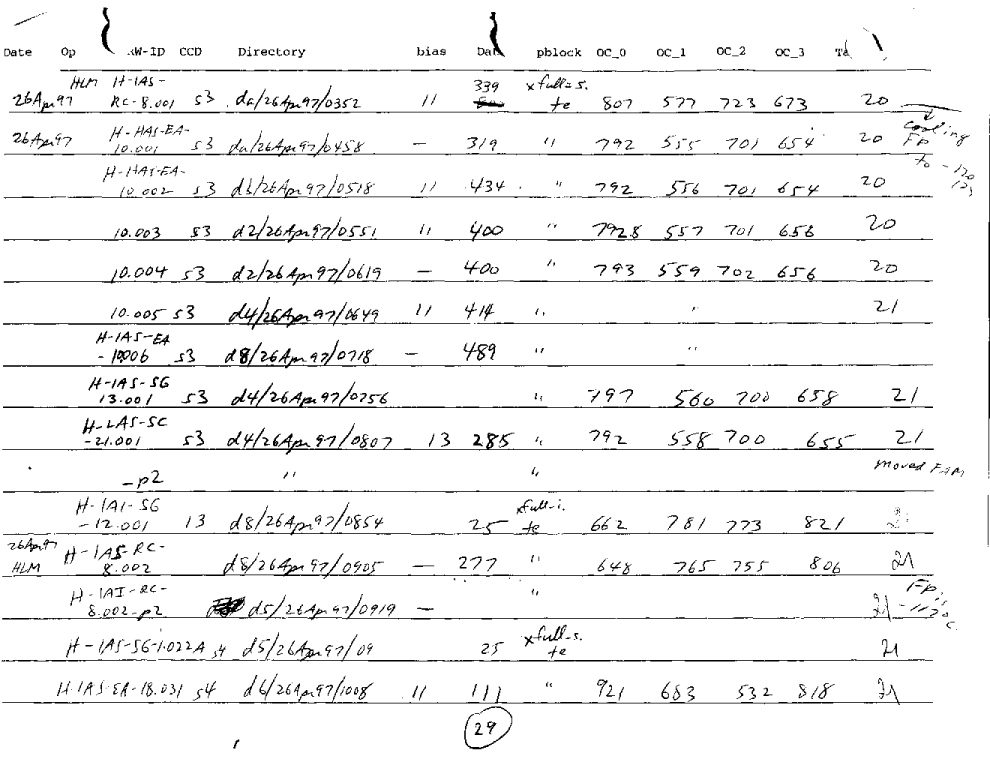 Date Op RW-ID CCD Directory bias Dat pblock OC_0 OC_1 OC_2 OC_3
HLM H-IAS- 339 xfull-s.
26Apr97 RC-8.001 s3 da/26Apr97/0352 11 te 807 577 723 673 20
cooling
26Apr97 H-HAS-EA- FP
10.001 s3 da/26Apr97/0458 — 319 " 792 555 701 654 20
to -120
H-HAS-EA-
10.002 s3 d3/26Apr97/0518 11 434 " 792 556 701 654 20
10.003 s3 d2/26Apr97/0551 11 400 " 7928 557 701 656 20
10.004 s3 d2/26Apr97/0619 — 400 " 793 559 702 656 20
10.005 s3 d4/26Apr97/0649 11 414 " " 21
H-IAS-EA
-10.006 s3 d8/26Apr97/0718 — 489 " "
H-IAS-SG
13.001 s3 d4/26Apr97/0756 " 797 560 700 658 21
H-LAS-SC
-21.001 s3 d4/26Apr97/0807 13 285 " 792 558 700 655 21
moved FAM
-p2 " "
H-IAI-SG xfull-i.
-12.001 13 d8/26Apr97/0854 25 te 662 781 773 821
26Apr97 H-IAS-RC-
HLM 8.002 d8/26Apr97/0905 — 277 " 648 765 755 806 21
H-IAI-RC- FP
8.002-p2 d5/26Apr97/0919 — " 21 -112°C
xfull-s.
H-IAS-SG-1.022A s4 d5/26Apr97/09 25 te 21
H-IAS-EA-18.031 s4 d6/26Apr97/1008 11 111 " 921 683 532 818 21
29